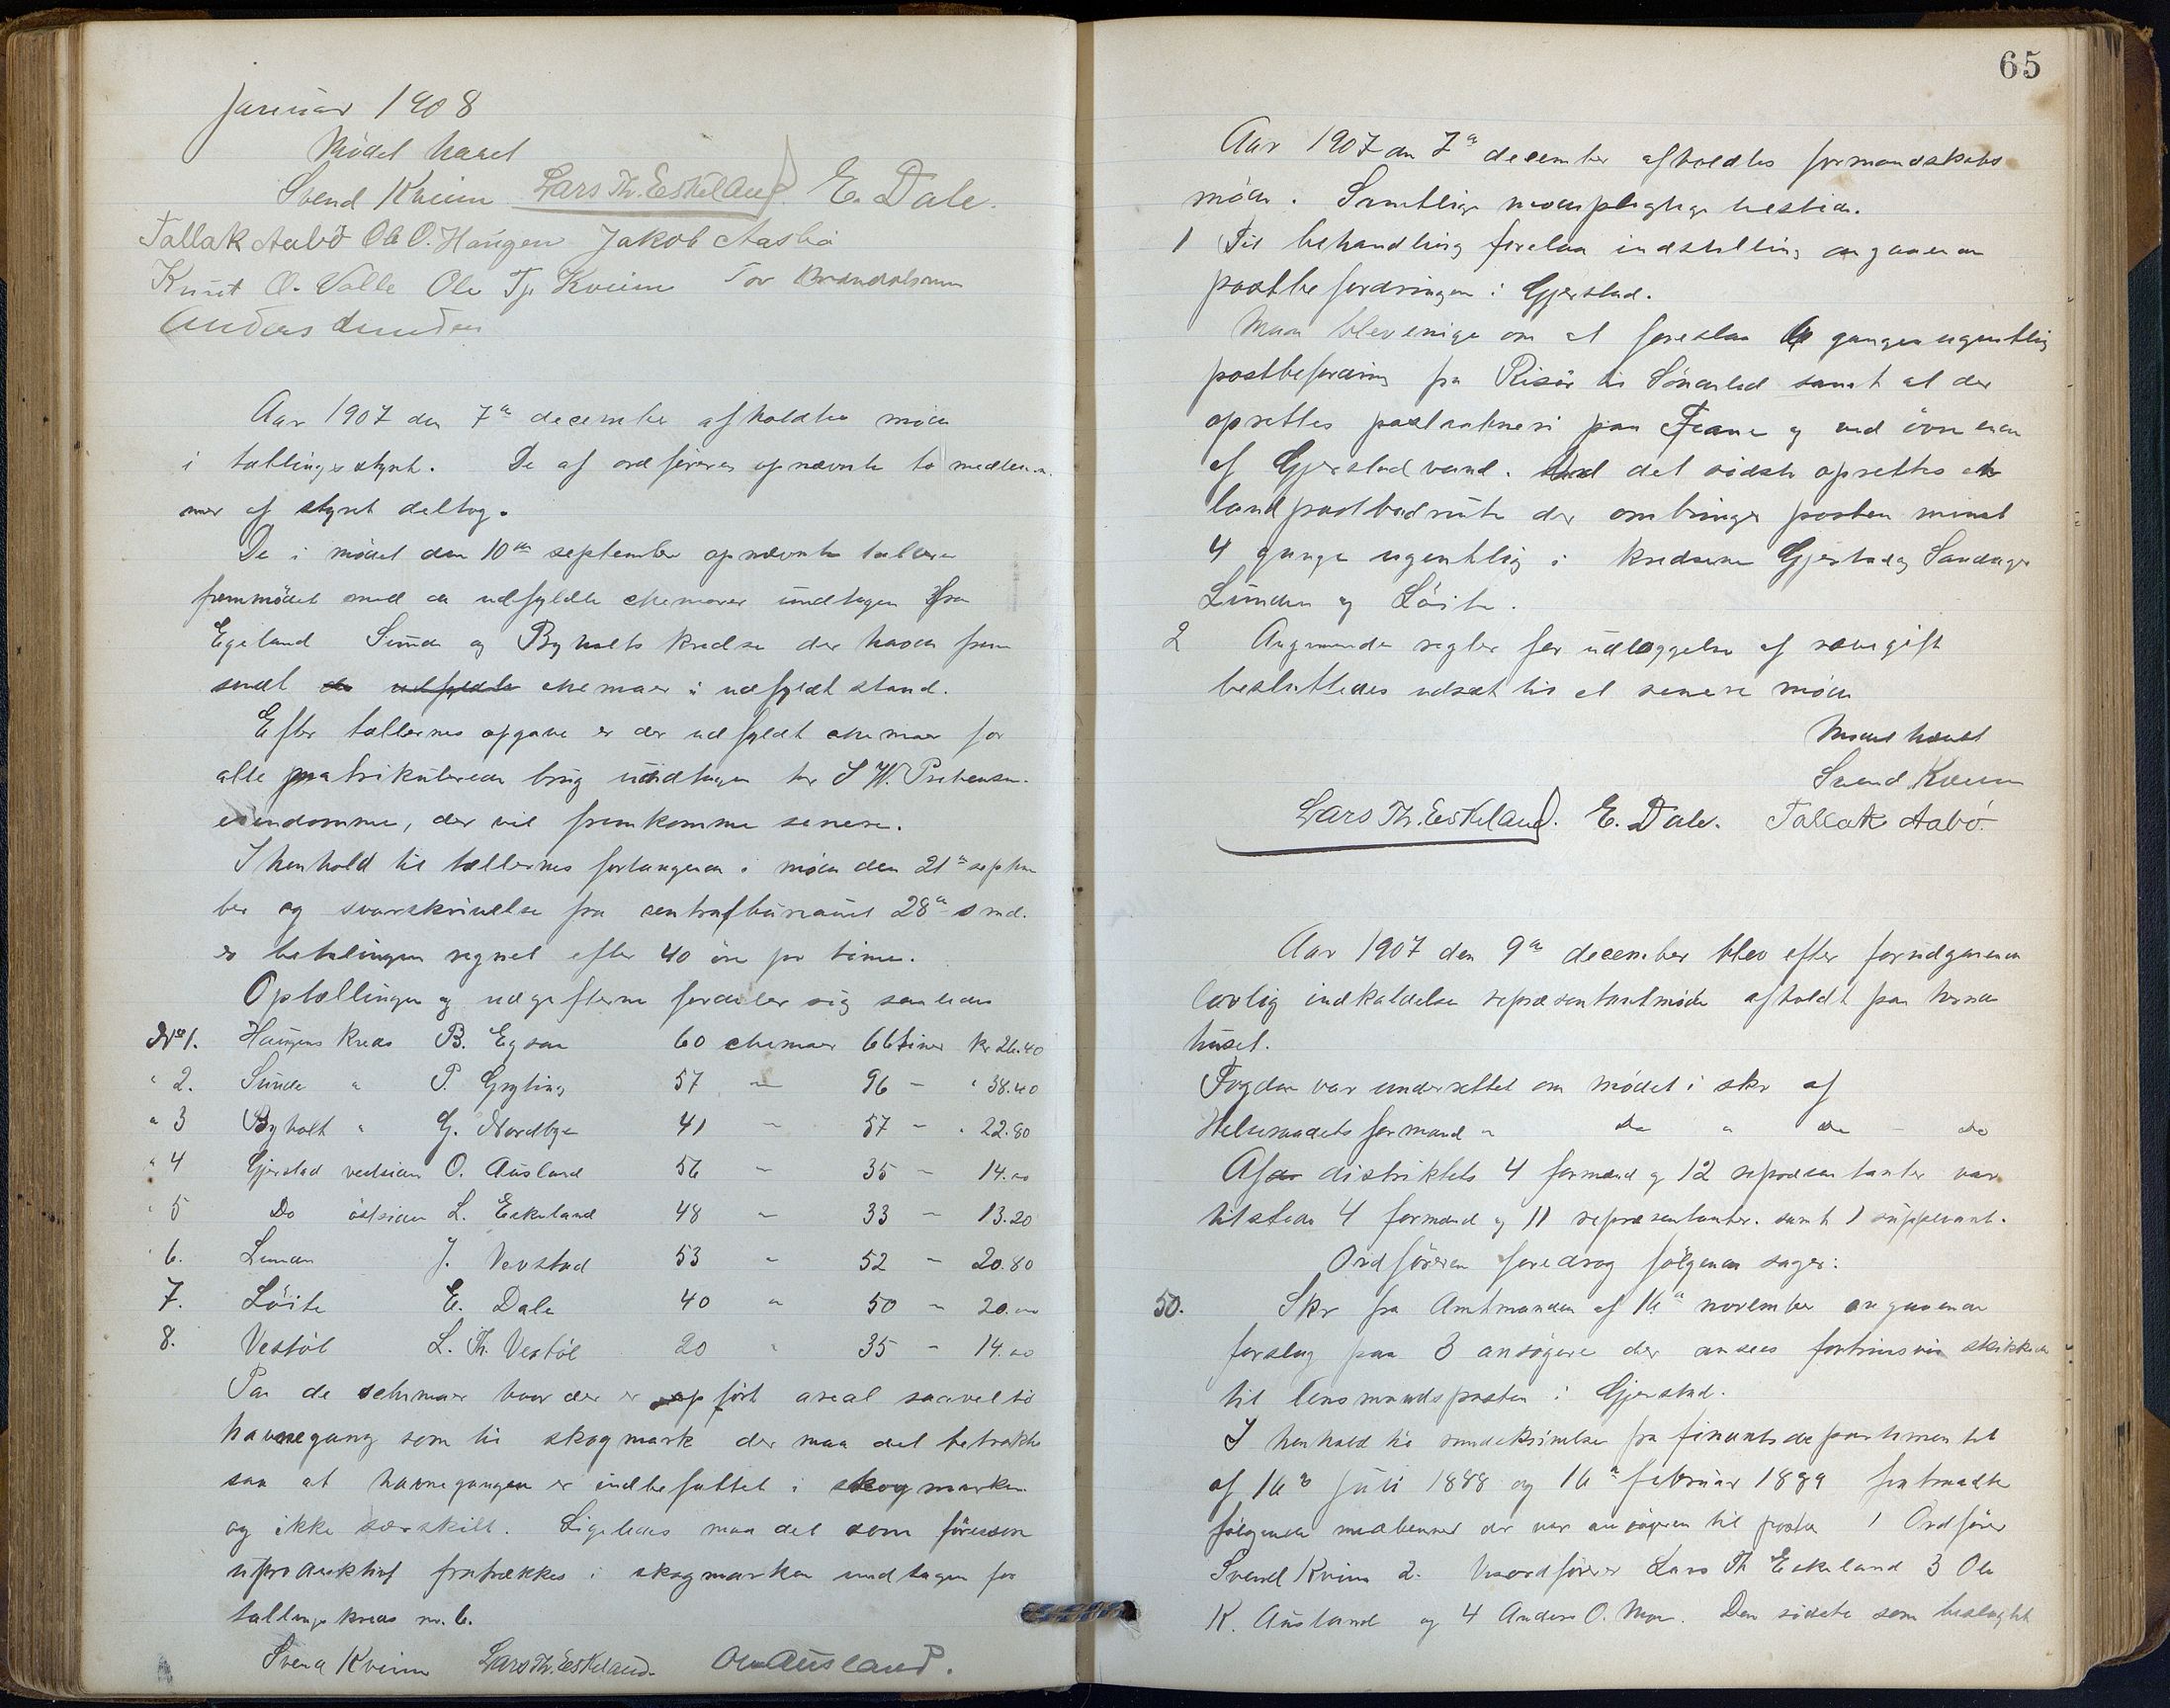 Januar 1908
Mødet hævet
Svend Kveim Lars Th. Eskeland E. Dale.
Tallak Aabø Ole O. Haugen Jakob Aasbø
Knut O. Valle Ole Tj. Kveim Tor
Anders Lunden
Aar 1907 den 7de december afholdtes møde
i tællingsstyret. De af ordføreren opnævnte to medlem-
mer af styret deltog.
De i mødet den 10de september opnævnte tællere
fremmødet med de udfyldte skemaer undtagen fra
Egeland Sunde og Byholts kredse der havde frem
sendt de udfyldte skemaer i udfyldt stand.
Efter tællernes opgave er der udfyldt skemaer for
alle matrikulerede brug undtagen for S W. Prebensens
eiendomme, der vil fremkomme senere.
I henhold til tællernes forlangende i møde den 21de septem
ber og svarskrivelse fra centralbureauet 28de s md.
er betalingen regnet efter 40 øre pr time.
Optællingen og udgifterne fordeler sig saaledes
No 1. Haugens kreds B. Egsaa 60 skemaer 66 timer kr 26.40
" 2. Sunde " P. Gryting 57 " 96 - " 38.40
" 3 Byholt " G. Nordbye 41 " 57 - " 22.80
" 4 Gjerstad vestsiden O. Ausland 56 " 35 - 14.00
" 5 Do østsiden L. Eskeland 48 " 33 - 13.20
" 6. Lunden J. Vevstad 53 " 52 - 20.80
7. Løite E. Dale 40 " 50 - 20.00
8. Vestøl L. Th. Vestøl 20 " 35 - 14.00
Paa de schemaer hvor der er opført areal saavel til
havnegang som til skogmark der maa det betragtes
saa at havnegangen er indbefattet i skogmarken
og ikke særskilt. Ligeledes maa det som føres som
uproduktivt fratrækkes i skogmarken undtagen for
tællingskreds nr. 6.
Svend Kveim Lars Th. Eskeland. Ole Ausland.
65
Aar 1907 den 7de december afholdtes formandskabs
møde. Samtlige mødepligtige tilstede.
1 Til behandling forelaa indstilling angaaende
postbefordringen i Gjerstad.
Man blev enige om at foreslaa 6 ganger ugentlig
postbefordring fra Risør til Søndeled samt at der
oprettes postaabneri paa Fiane og ved øvre ende
af Gjerstadvand. Ved det sidste oprettes en
landpostbudrute der ombringer posten mindst
4 gange ugentlig i kredsene Gjerstad, Sandaker
Lunden og Løite.
2 Angaaende regler for udlæggelse af rævegift
besluttedes udsat til et senere møde
Mødet hævet
Svend Kveim
Lars Th. Eskeland. E. Dale. Tallak Aabø.
Aar 1907 den 9de december blev efter forudgaaende
lovlig indkaldelse repræsentantmøde afholdt paa herreds
huset.
Fogden var underrettet om mødet i skr af
Helseraadets formand " Do " Do - Do
Af distriktets 4 formænd og 12 repræsentanter var
tilstede 4 formænd og 11 repræsentanter. samt 1 suppleant.
Ordføreren foredrog følgende sager:
50. Skr fra Amtmanden af 16de november angaaende
forslag paa 3 ansøgere der ansees fortrinsvis skikkede
til lensmandsposten i Gjerstad.
I henhold til rundskrivelse fra finantsdepartementet
af 16de juli 1888 og 16de februar 1889 fratraadte
følgende medlemmer der var ansøgere til posten 1 Ordfører
Svend Kveim 2. Viseordfører Lars Th Eskeland 3 Ole
K. Ausland og 4 Anders O. Moe. Den sidste som beslægtet